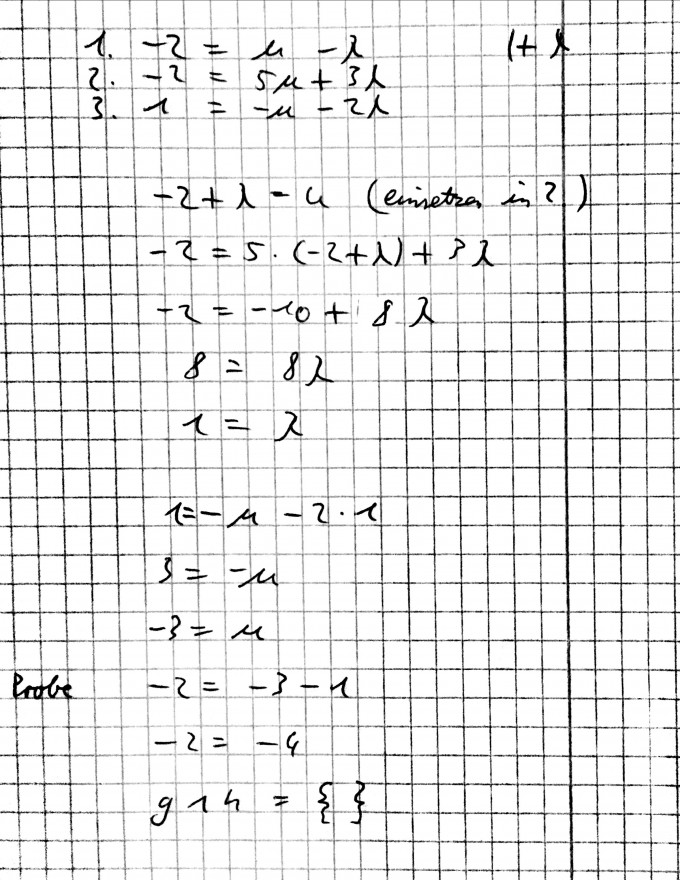 1. -2 = μ - λ |+ λ
2. -2 = 5μ + 3λ
3. 1 = -μ - 2λ
-2 + λ = μ (einsetzen in 2)
-2 = 5 · (-2+λ) + 3λ
-2 = -10 + 8λ
8 = 8λ
1 = λ
1 = -μ - 2 · 1
3 = -μ
-3 = μ
Probe -2 = -3 - 1
-2 = -4
g ∩ h = { }